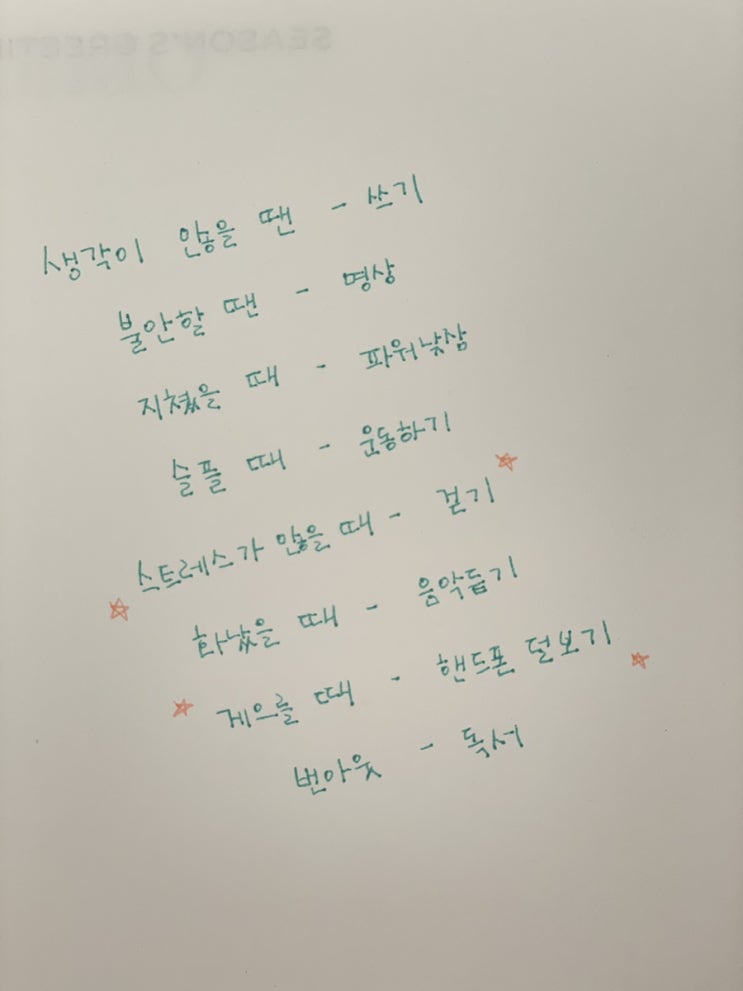 SEASON'S GREETI
생각이 많을 땐 - 쓰기
불안할 땐 - 명상
지쳤을 때 - 파워낮잠
슬플 때 - 운동하기
스트레스가 많을 때 - 걷기
화났을 때 - 음악듣기
게으를 때 - 핸드폰 덜보기
번아웃 - 독서